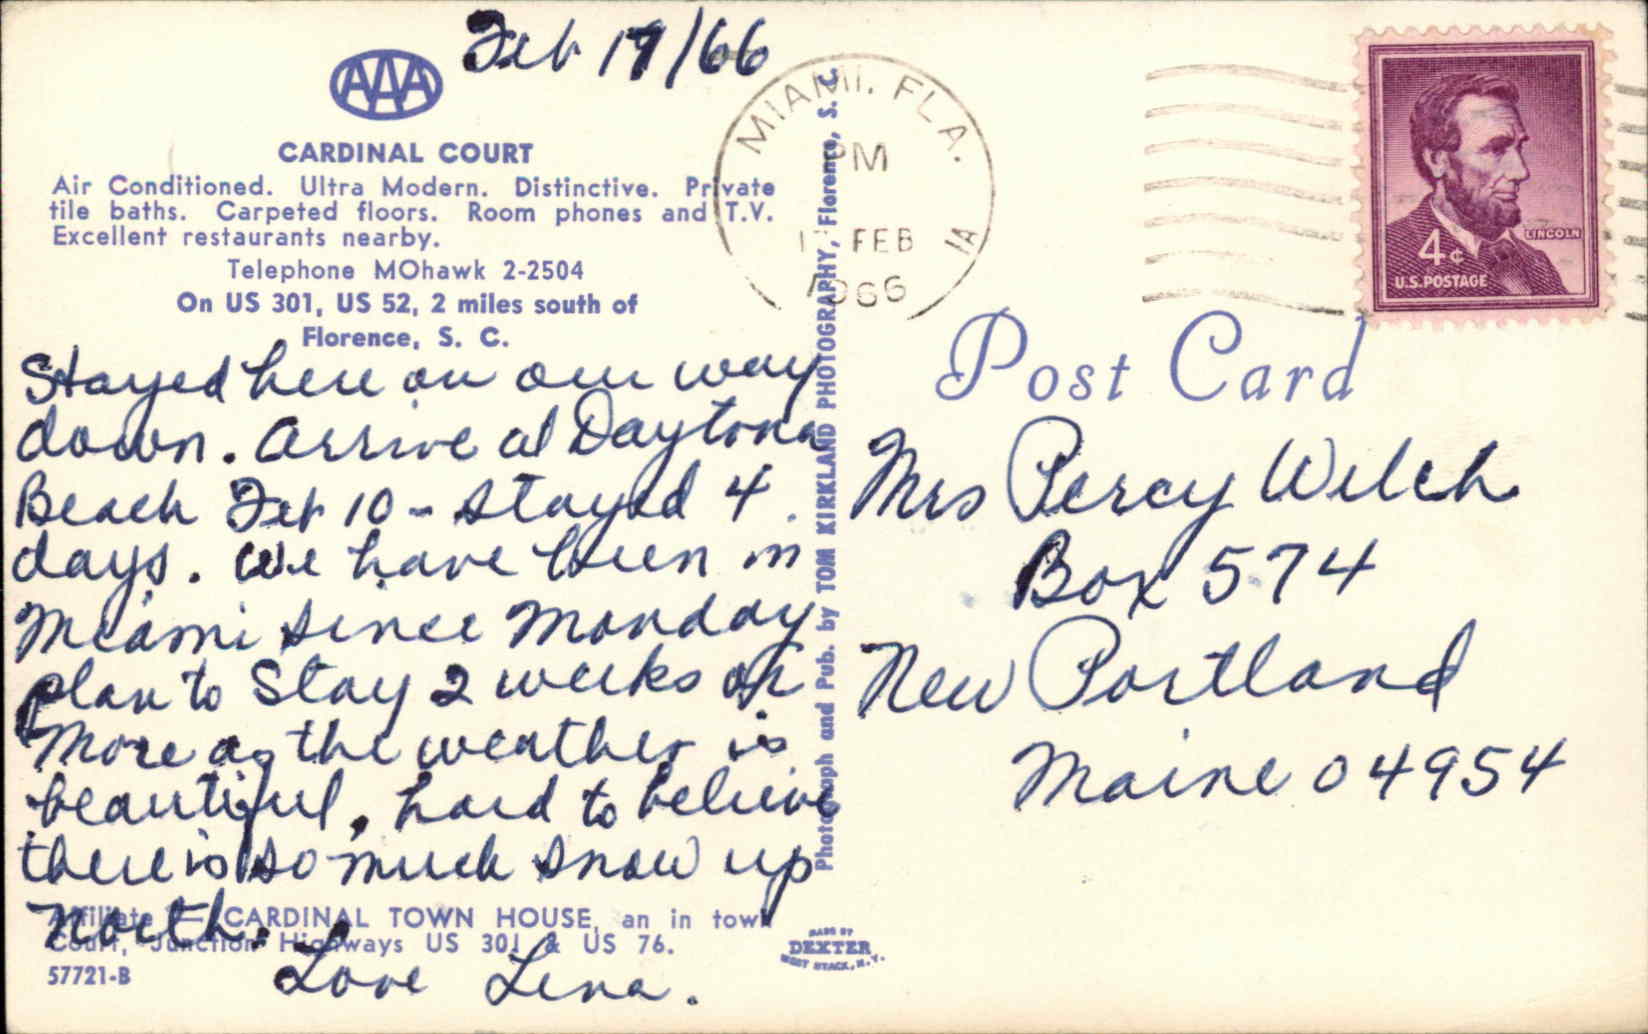 Feb 17/66
AAA
CARDINAL COURT
Air Conditioned. Ultra Modern. Distinctive. Private
tile baths. Carpeted floors. Room phones and T.V.
Excellent restaurants nearby.
Telephone MOhawk 2-2504
On US 301, US 52, 2 miles south of
Florence, S. C.
Stayed here on our way
down. Arrive at Daytona
Beach Feb 10 - stayed 4
days. We have been in
Miami since Monday
plan to Stay 2 weeks or
more as the weather is
beautiful, hard to believe
there is so much snow up
north.
Love Lena.
Affiliate — CARDINAL TOWN HOUSE, an in town
Court, Junction Highways US 301 & US 76.
57721-B
Photograph and Pub. by TOM KIRKLAND PHOTOGRAPHY, Florence, S. C.
MADE BY
DEXTER
WEST NYACK, N.Y.
MIAMI, FLA.
PM
FEB
1966
1A
4¢
LINCOLN
U.S. POSTAGE
Post Card
Mrs Percy Welch
Box 574
New Portland
Maine 04954